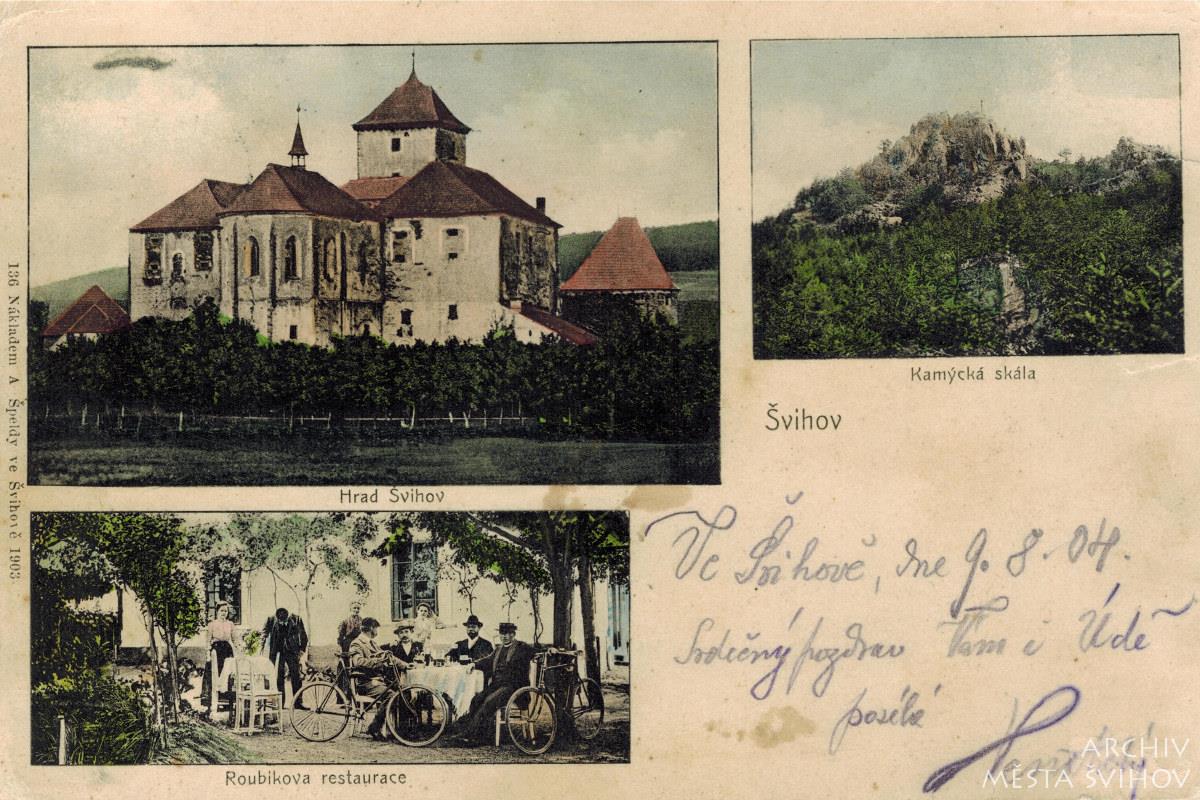 136 Nákladem A Špeldy ve Švihově 1903
Hrad Švihov
Kamýcká skála
Švihov
Roubikova restaurace
Ve Švihově, dne 9. 8. 04.
Srdečný pozdrav Vám i
posílá
ARCHIV
MĚSTA ŠVIHOV